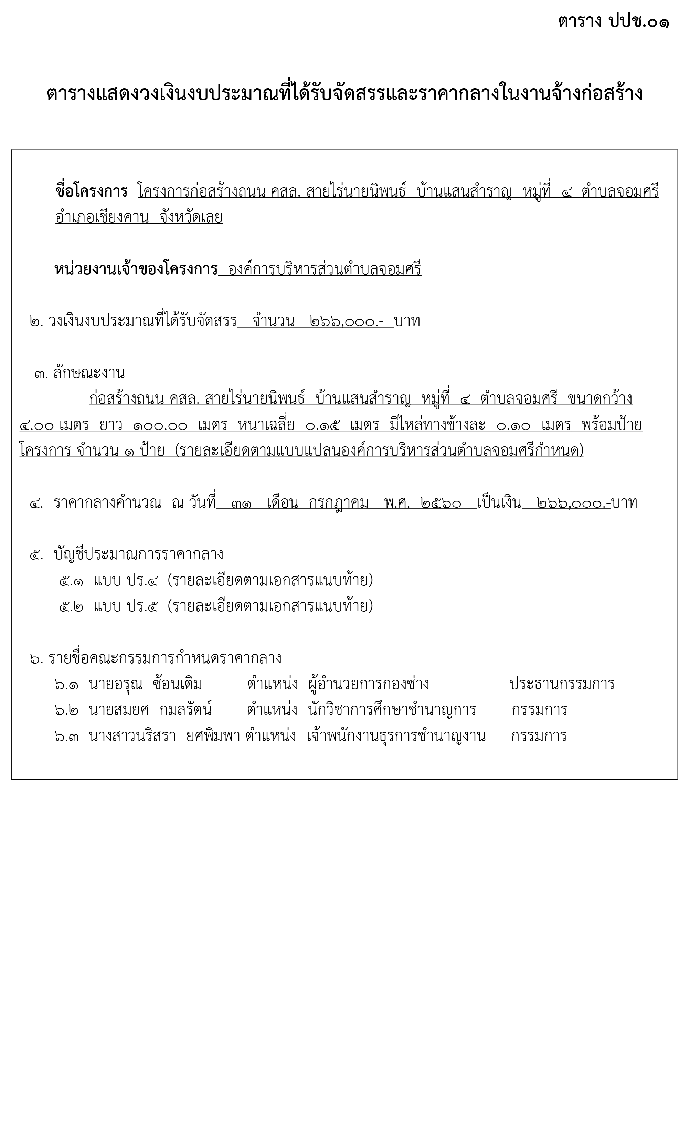 ตาราง ปปช.๐๑
ตารางแสดงวงเงินงบประมาณที่ได้รับจัดสรรและราคากลางในงานจ้างก่อสร้าง
ชื่อโครงการ โครงการก่อสร้างถนน คสล. สายไร่นายนิพนธ์ บ้านแสนสำราญ หมู่ที่ ๔ ตำบลจอมศรี
อำเภอเชียงคาน จังหวัดเลย
หน่วยงานเจ้าของโครงการ องค์การบริหารส่วนตำบลจอมศรี
๒. วงเงินงบประมาณที่ได้รับจัดสรร จำนวน ๒๖๖,๐๐๐.- บาท
๓. ลักษณะงาน
ก่อสร้างถนน คสล. สายไร่นายนิพนธ์ บ้านแสนสำราญ หมู่ที่ ๔ ตำบลจอมศรี ขนาดกว้าง
๔.๐๐ เมตร ยาว ๑๐๐.๐๐ เมตร หนาเฉลี่ย ๐.๑๕ เมตร มีไหล่ทางข้างละ ๐.๑๐ เมตร พร้อมป้าย
โครงการ จำนวน ๑ ป้าย (รายละเอียดตามแบบแปลนองค์การบริหารส่วนตำบลจอมศรีกำหนด)
๔. ราคากลางคำนวณ ณ วันที่ ๓๑ เดือน กรกฎาคม พ.ศ. ๒๕๖๐ เป็นเงิน ๒๖๖,๐๐๐.-บาท
๕. บัญชีประมาณการราคากลาง
๕.๑ แบบ ปร.๔ (รายละเอียดตามเอกสารแนบท้าย)
๕.๒ แบบ ปร.๕ (รายละเอียดตามเอกสารแนบท้าย)
๖. รายชื่อคณะกรรมการกำหนดราคากลาง
๖.๑ นายอรุณ ซ้อนเติม ตำแหน่ง ผู้อำนวยการกองช่าง ประธานกรรมการ
๖.๒ นายสมยศ กมลรัตน์ ตำแหน่ง นักวิชาการศึกษาชำนาญการ กรรมการ
๖.๓ นางสาวนริสรา ยศพิมพา ตำแหน่ง เจ้าพนักงานธุรการชำนาญงาน กรรมการ